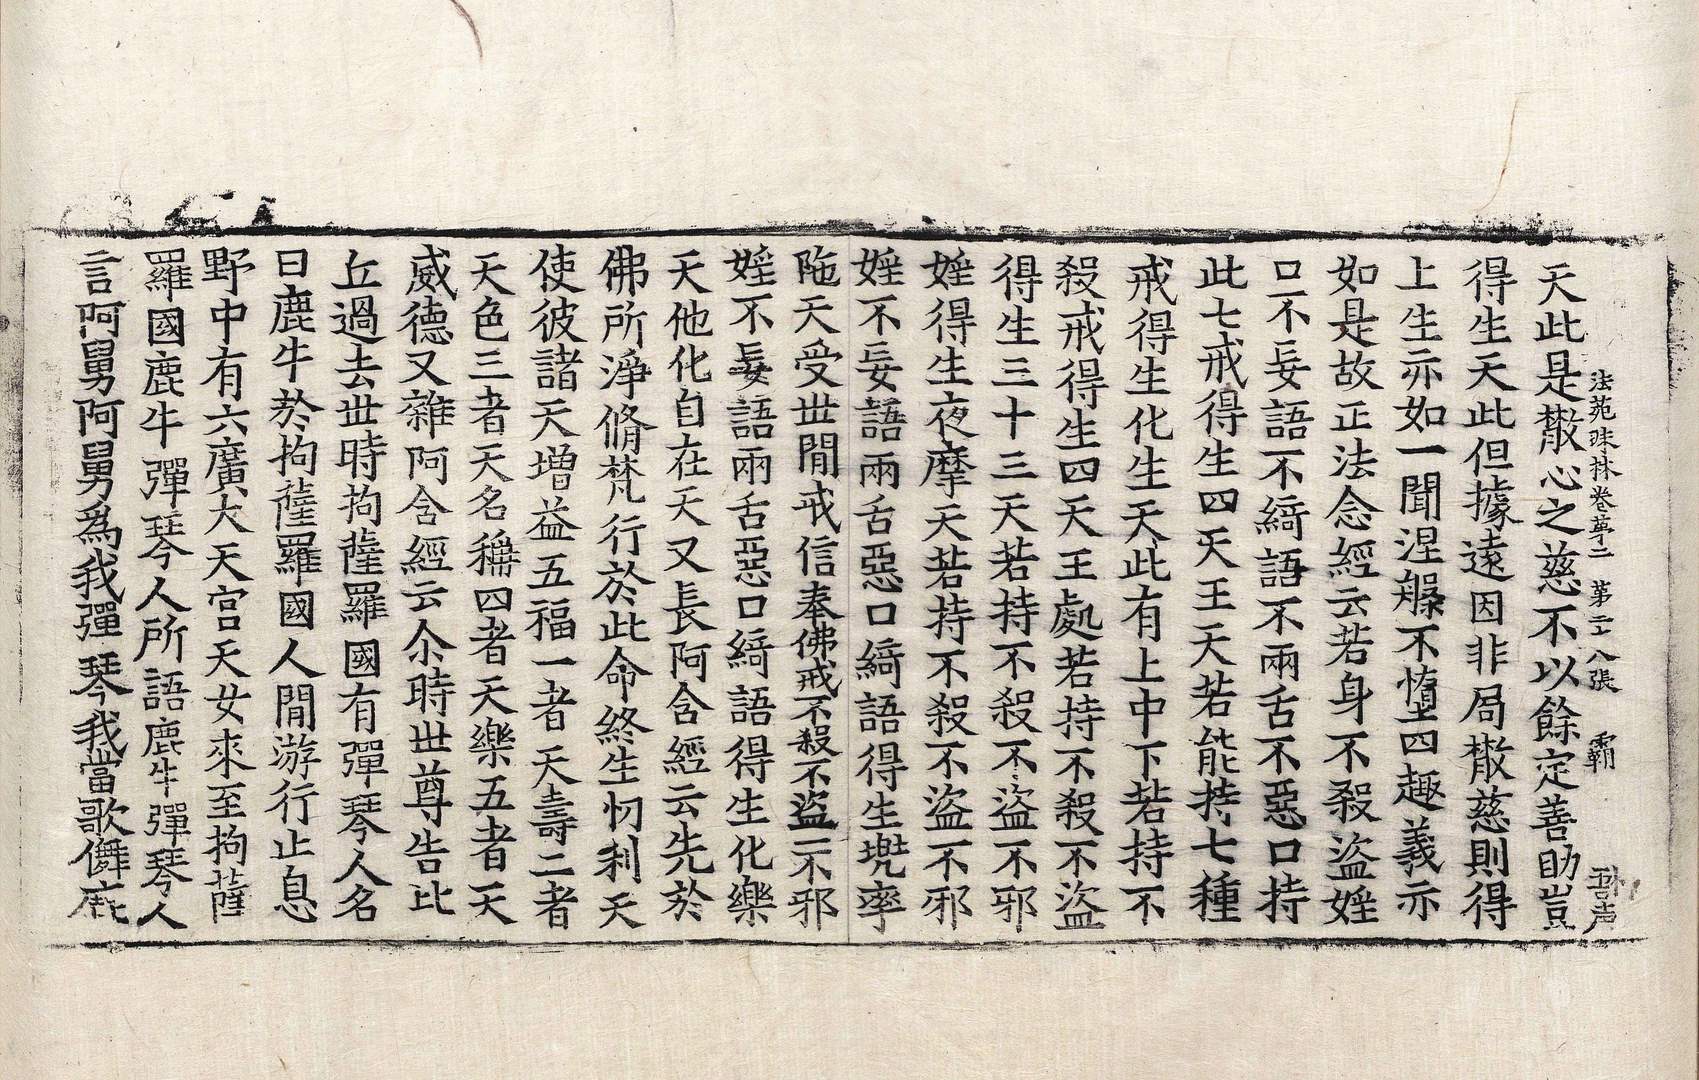 法苑珠林卷第二 第二十八張 覇
天此是散心之慈不以餘定善助豈
得生天此但據遠因非局散慈則得
上生亦如一聞涅槃不墮四趣義示
如是故正法念經云若身不殺盜婬
口不妄語不綺語不兩舌不惡口持
此七戒得生四天王天若能持七種
戒得生化生天此有上中下若持不
殺戒得生四天王處若持不殺不盜
得生三十三天若持不殺不盜不邪
婬得生夜摩天若持不殺不盜不邪
婬不妄語兩舌惡口綺語得生兠率
陁天受世間戒信奉佛戒不殺不盜不邪
婬不妄語兩舌惡口綺語得生化樂
天他化自在天又長阿含經云先於
佛所淨脩梵行於此命終生忉利天
使彼諸天增益五福一者天壽二者
天色三者天名稱四者天樂五者天
威德又雜阿含經云尒時世尊告比
丘過去世時拘薩羅國有彈琴人名
曰鹿牛於拘薩羅國人間游行止息
野中有六廣大天宮天女來至拘薩
羅國鹿牛彈琴人所語鹿牛彈琴人
言阿舅阿舅爲我彈琴我當歌儛鹿